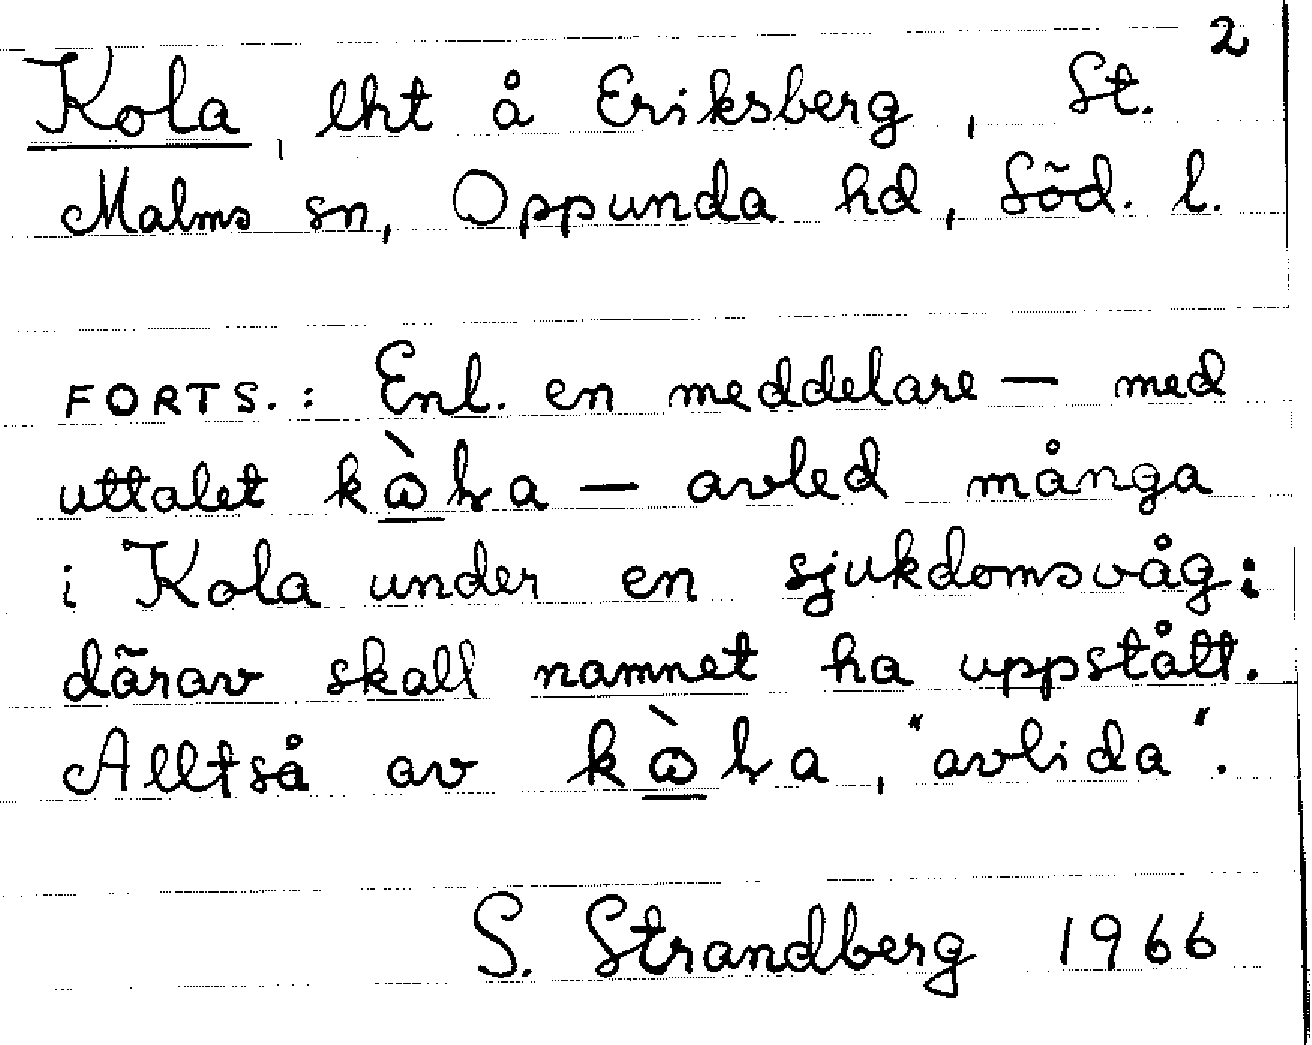 2
Kola, lht å Eriksberg, St.
Malms sn, Oppunda hd, Söd. l.
FORTS.: Enl. en meddelare — med
uttalet — avled många
i Kola under en sjukdomsvåg:
därav skall namnet ha uppstått.
Alltså av , "avlida".
S. Strandberg 1966